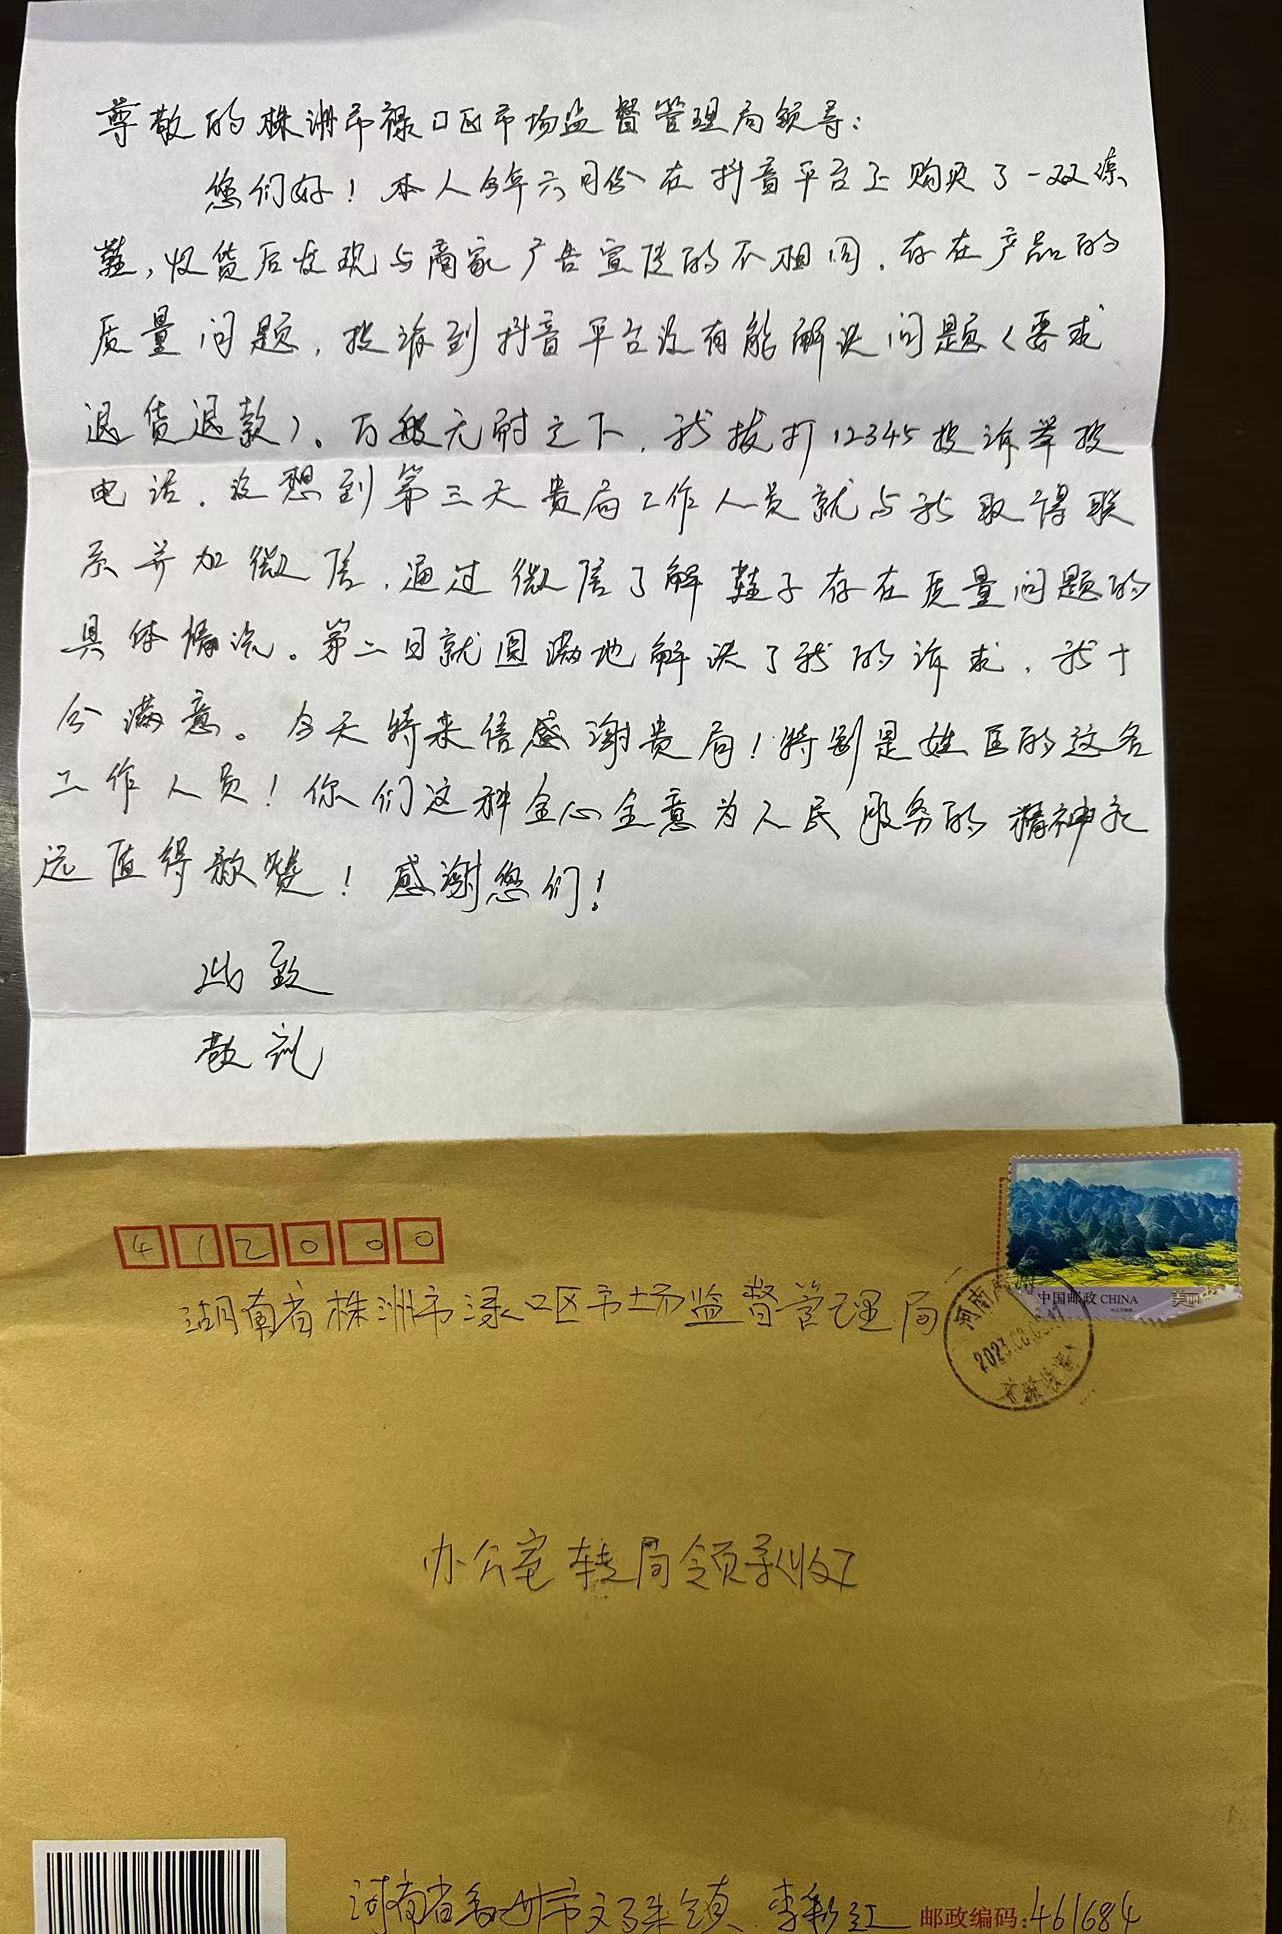 尊敬的株洲市禄口区市场监督管理局领导:
您们好!本人今年六月份在抖音平台上购买了一双凉
鞋,收货后发现与商家广告宣传的不相同,存在产品的
质量问题,投诉到抖音平台没有能解决问题(要求
退货退款)。万般无耐之下,我拔打12345投诉举投
电话,没想到第三天贵局工作人员就与我取得联
系并加微信,通过微信了解鞋子存在质量问题的
具体情况。第二日就圆满地解决了我的诉求,我十
分满意。今天特来信感谢贵局!特别是姓匡的这名
工作人员!你们这种全心全意为人民服务的精神永
远值得歌赞!感谢您们!
此致
敬礼
412000
湖南省株洲市渌口区市场监督管理局
中国邮政 CHINA
美丽
河南
2023
办公室转局领导(收)
河南省禹州市文殊镇 李彩红 邮政编码:461684